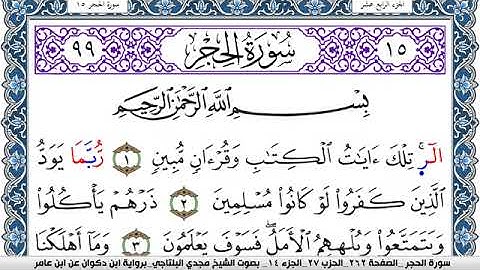 سورة الحجر ١٥
الجزء الرابع عشر
٩٩ سُورَةُ الحِجْرِ ١٥
بِسْمِ اللَّهِ الرَّحْمَٰنِ الرَّحِيمِ
الٓر تِلْكَ ءَايَٰتُ الْكِتَٰبِ وَقُرْءَانٍ مُّبِينٍ ١ رُّبَّمَا يَوَدُّ
الَّذِينَ كَفَرُوا لَوْ كَانُوا مُسْلِمِينَ ٢ ذَرْهُمْ يَأْكُلُوا
وَيَتَمَتَّعُوا وَيُلْهِهِمُ الْأَمَلُ فَسَوْفَ يَعْلَمُونَ ٣ وَمَا أَهْلَكْنَا
سورة الحجر_الصفحة ٢٦٢_الحزب ٢٧_الجزء ١٤_ بصوت الشيخ مجدي البلتاجي_برواية ابن ذكوان عن ابن عامر